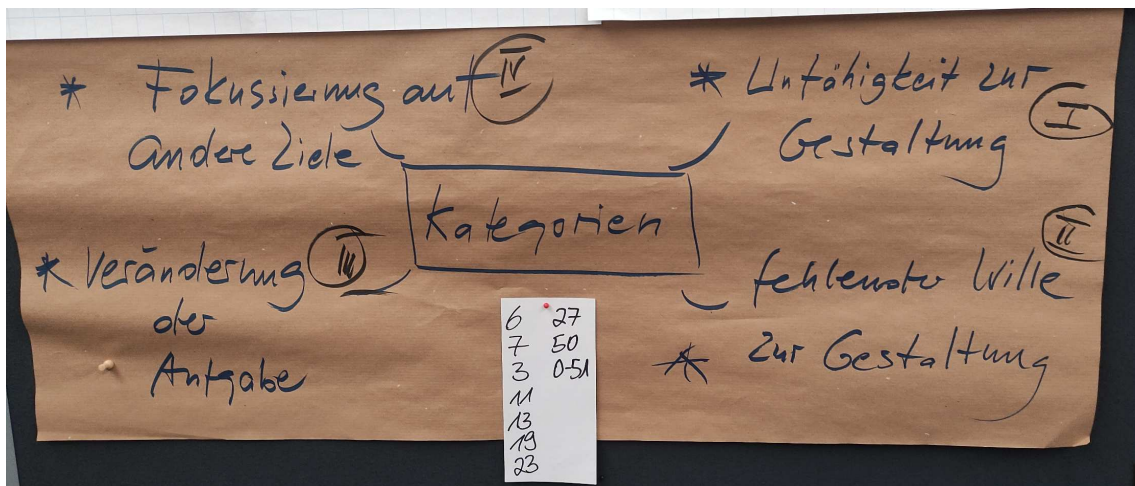 * Fokussierung auf IV
andere Ziele
* Unfähigkeit zur
Gestaltung I
Kategorien
* Veränderung III
der
Aufgabe
fehlender Wille II
* zur Gestaltung
6 27
7 50
3 0-51
11
13
19
23